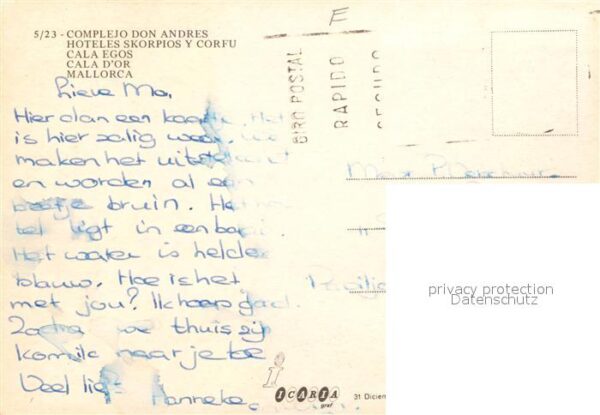 5/23 - COMPLEJO DON ANDRES
HOTELES SKORPIOS Y CORFU
CALA EGOS
CALA D'OR
MALLORCA
E
GIRO POSTAL
RAPIDO
SEGURO
Lieve Ma,
Hier dan een kaartje. Het
is hier zalig weer. We
maken het uitstekend
en worden al een
beetje bruin. Het ho
tel ligt in een baai.
Het water is helder
blauw. Hoe is het
met jou? Ik hoop goed.
Zodra we thuis zijn
kom ik naar je toe
Veel liefs
Hanneke.
privacy protection
Datenschutz
ICARIA
graf
31 Diciem